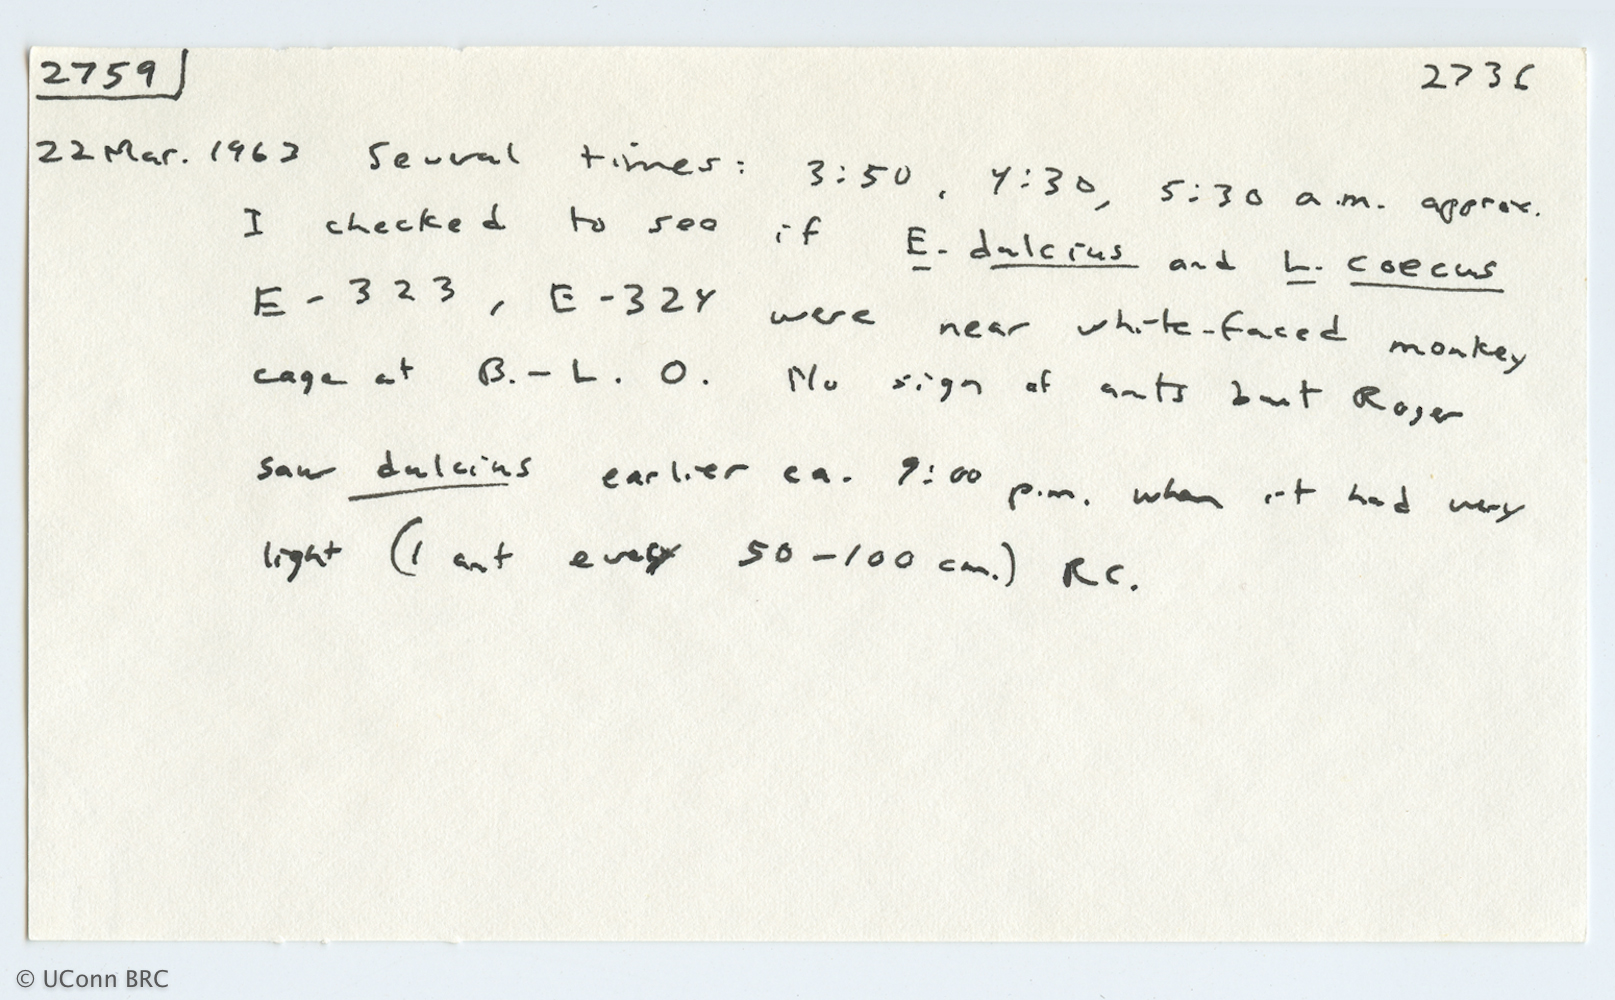 2759 2736
22 Mar. 1963 Several times: 3:50, 4:30, 5:30 a.m. approx.
I checked to see if E. dulcius and L. coecus
E-323, E-324 were near white-faced monkey
cage at B.-L. O. No sign of ants but Roger
saw dulcius earlier ca. 9:00 p.m. when it had very
light (1 ant every 50-100 cm.) RC.
© UConn BRC